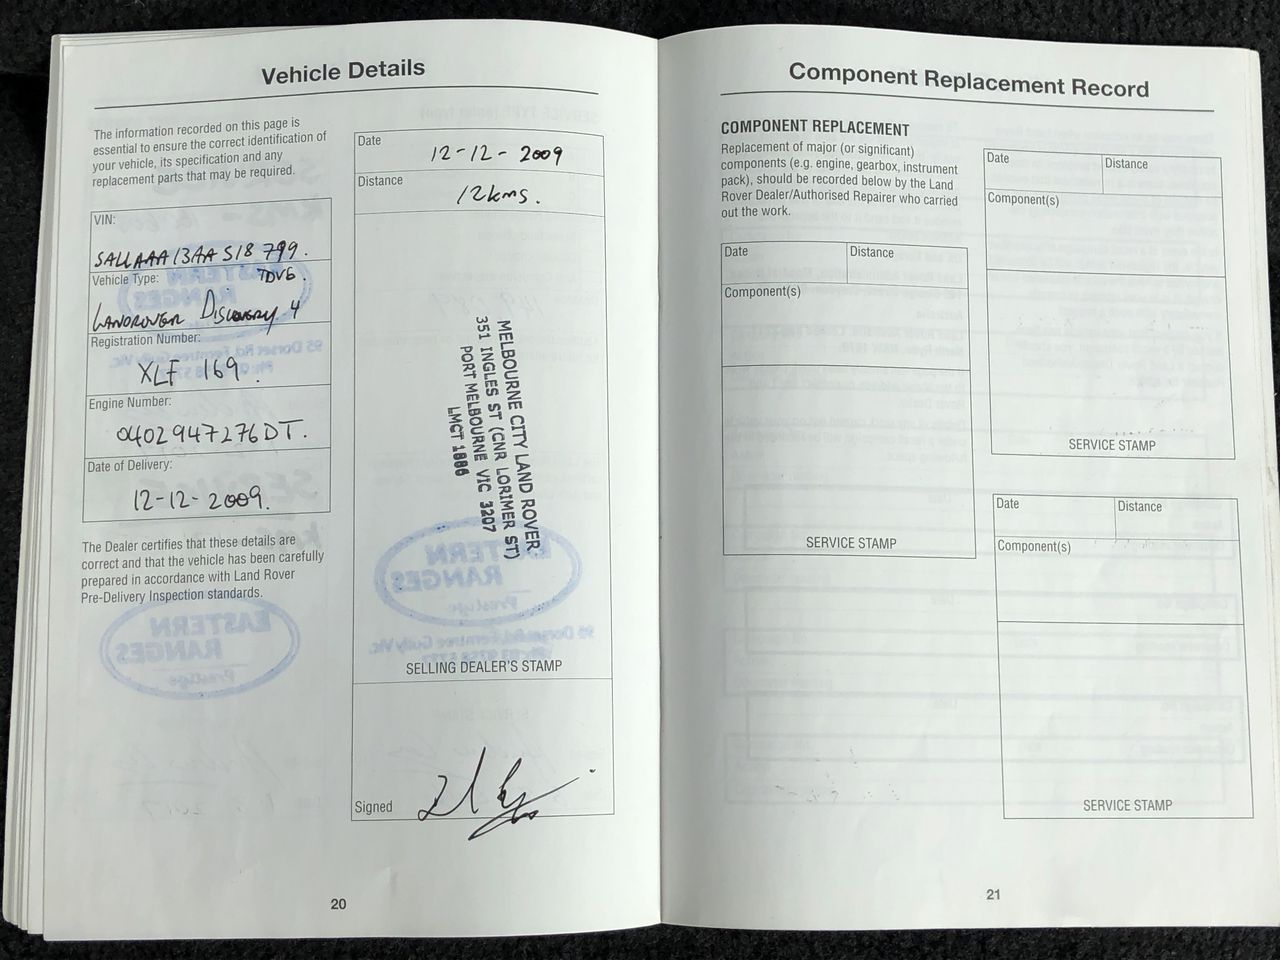 Vehicle Details
The information recorded on this page is
essential to ensure the correct identification of
your vehicle, its specification and any
replacement parts that may be required.
VIN:
SALLAAA13AA518799.
Vehicle Type: TDV6.
LANDROVER DISCOVERY 4
Registration Number:
XLF 169.
Engine Number:
0402947276DT.
Date of Delivery:
12-12-2009.
The Dealer certifies that these details are
correct and that the vehicle has been carefully
prepared in accordance with Land Rover
Pre-Delivery Inspection standards.
Date
12-12-2009
Distance
12kms.
MELBOURNE CITY LAND ROVER
351 INGLES ST (CNR LORIMER ST)
PORT MELBOURNE VIC 3207
LMCT 1886
EASTERN
RANGES
Prestige
SELLING DEALER'S STAMP
Signed
EASTERN
RANGES
Prestige
20
Component Replacement Record
COMPONENT REPLACEMENT
Replacement of major (or significant)
components (e.g. engine, gearbox, instrument
pack), should be recorded below by the Land
Rover Dealer/Authorised Repairer who carried
out the work.
Date Distance
Component(s)
SERVICE STAMP
Date Distance
Component(s)
SERVICE STAMP
Date Distance
Component(s)
SERVICE STAMP
21